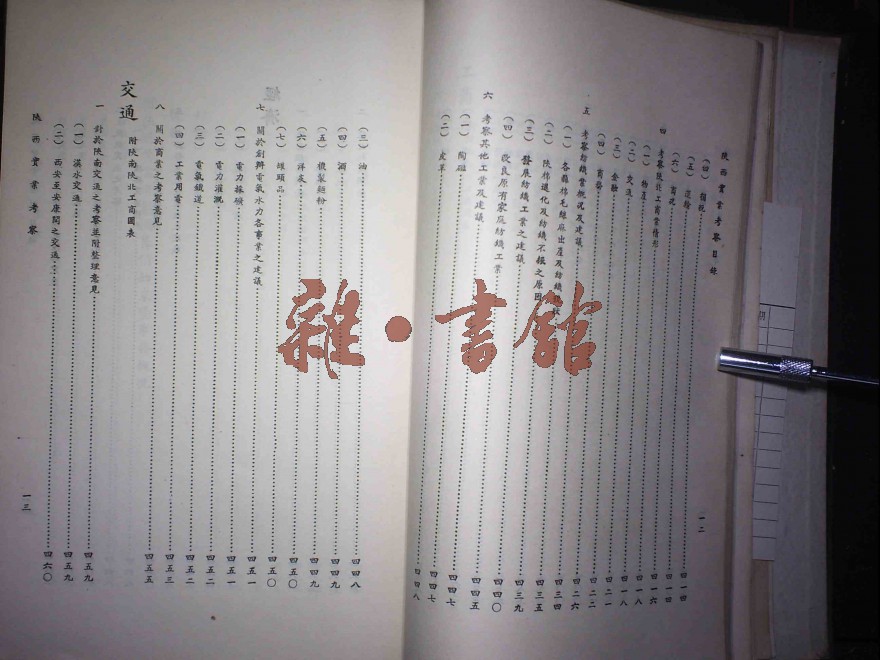 陝西實業考察目錄
（四）捐稅 四一四
（五）運輸 四一四
（六）商況 四一四
四 考察陝北工商業情形 四一六
（一）物產 四一八
（二）交通 四一八
（三）金融 四二一
（四）商務 四二二
五 考察紡織業概況及建議 四二六
（一）各縣棉毛絲麻出產及紡織 四三四
（二）陝棉退化及紡織不振之原因 四三五
（三）發展紡織工業之建議 四三九
（四）改良原有家庭紡織工業 四四〇
六 考察其他工業及建議 四四五
（一）陶磁 四四七
（二）皮革 四四七
四四八
一二
（三）油 四四八
（四）酒 四四九
（五）機製麵粉 四四九
（六）洋灰 四五〇
（七）罐頭品 四五〇
七 關於創辦電氣水力各事業之建議 四五一
（一）電力採礦 四五一
（二）電力灌溉 四五二
（三）電氣鐵道 四五二
（四）工業用電 四五三
八 關於商業之考察意見 四五五
附陝南陝北工商圖表
交通
一 對於陝南交通之考察並附整理意見 四五九
（一）漢水交通 四五九
（二）西安至安康間之交通 四六〇
陝西實業考察
一三
雜·書館